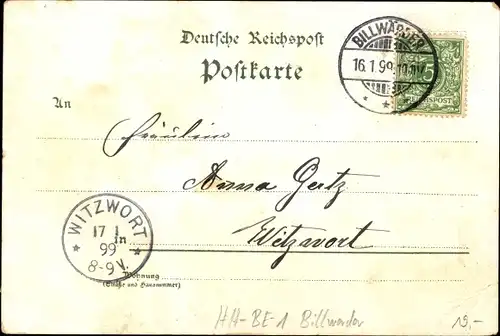 Deutsche Reichspost
Postkarte
BILLWÄRDER
16.1.99
5
REICHSPOST
An
Fräulein
Anna Gertz
Witzwort
WITZWORT
17 1
99
8-9 V.
in
Wohnung
(Straße und Hausnummer)
HH-BE-1 Billwerder
12.-